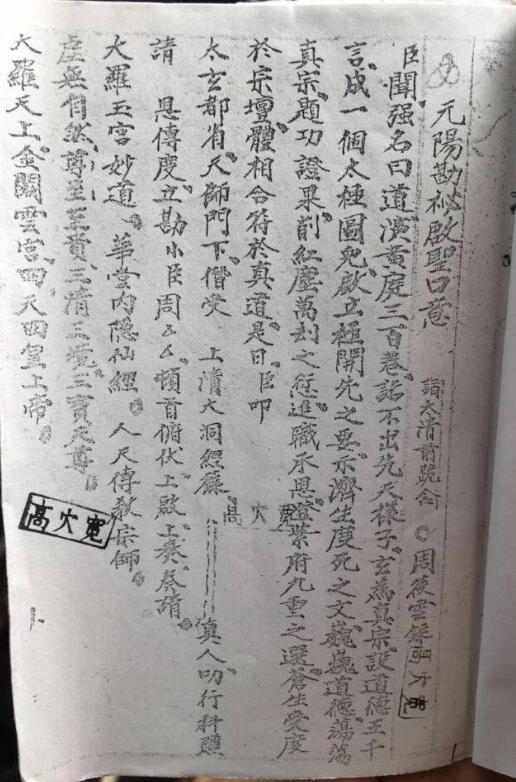 元陽勘秘啟聖口意 請太清前跪念 周後雲
臣聞强名曰道演黃庭三百卷話不出先天樣子玄為真宗設道德五千
言成一個太極圖兒啟立極開先之要示濟生度死之文巍巍道德蕩蕩
真宗題功證果削紅塵萬刦之愆進職承恩證紫府九重之選蒼生受度
於宗壇體相合符於真道是日臣叩
太玄都省天師門下僭受 上清大洞經籙 真人叨行科醮
請 恩傳度立勘小臣周厶厶頓首俯伏上啟上奏奏請
大羅玉宮妙道 華堂內隐仙經 人天傳教宗師
虛無自然尊至至真三清三境三寶天尊
大羅天上金闕雲宮四天四皇上帝
高火寬
高火寬